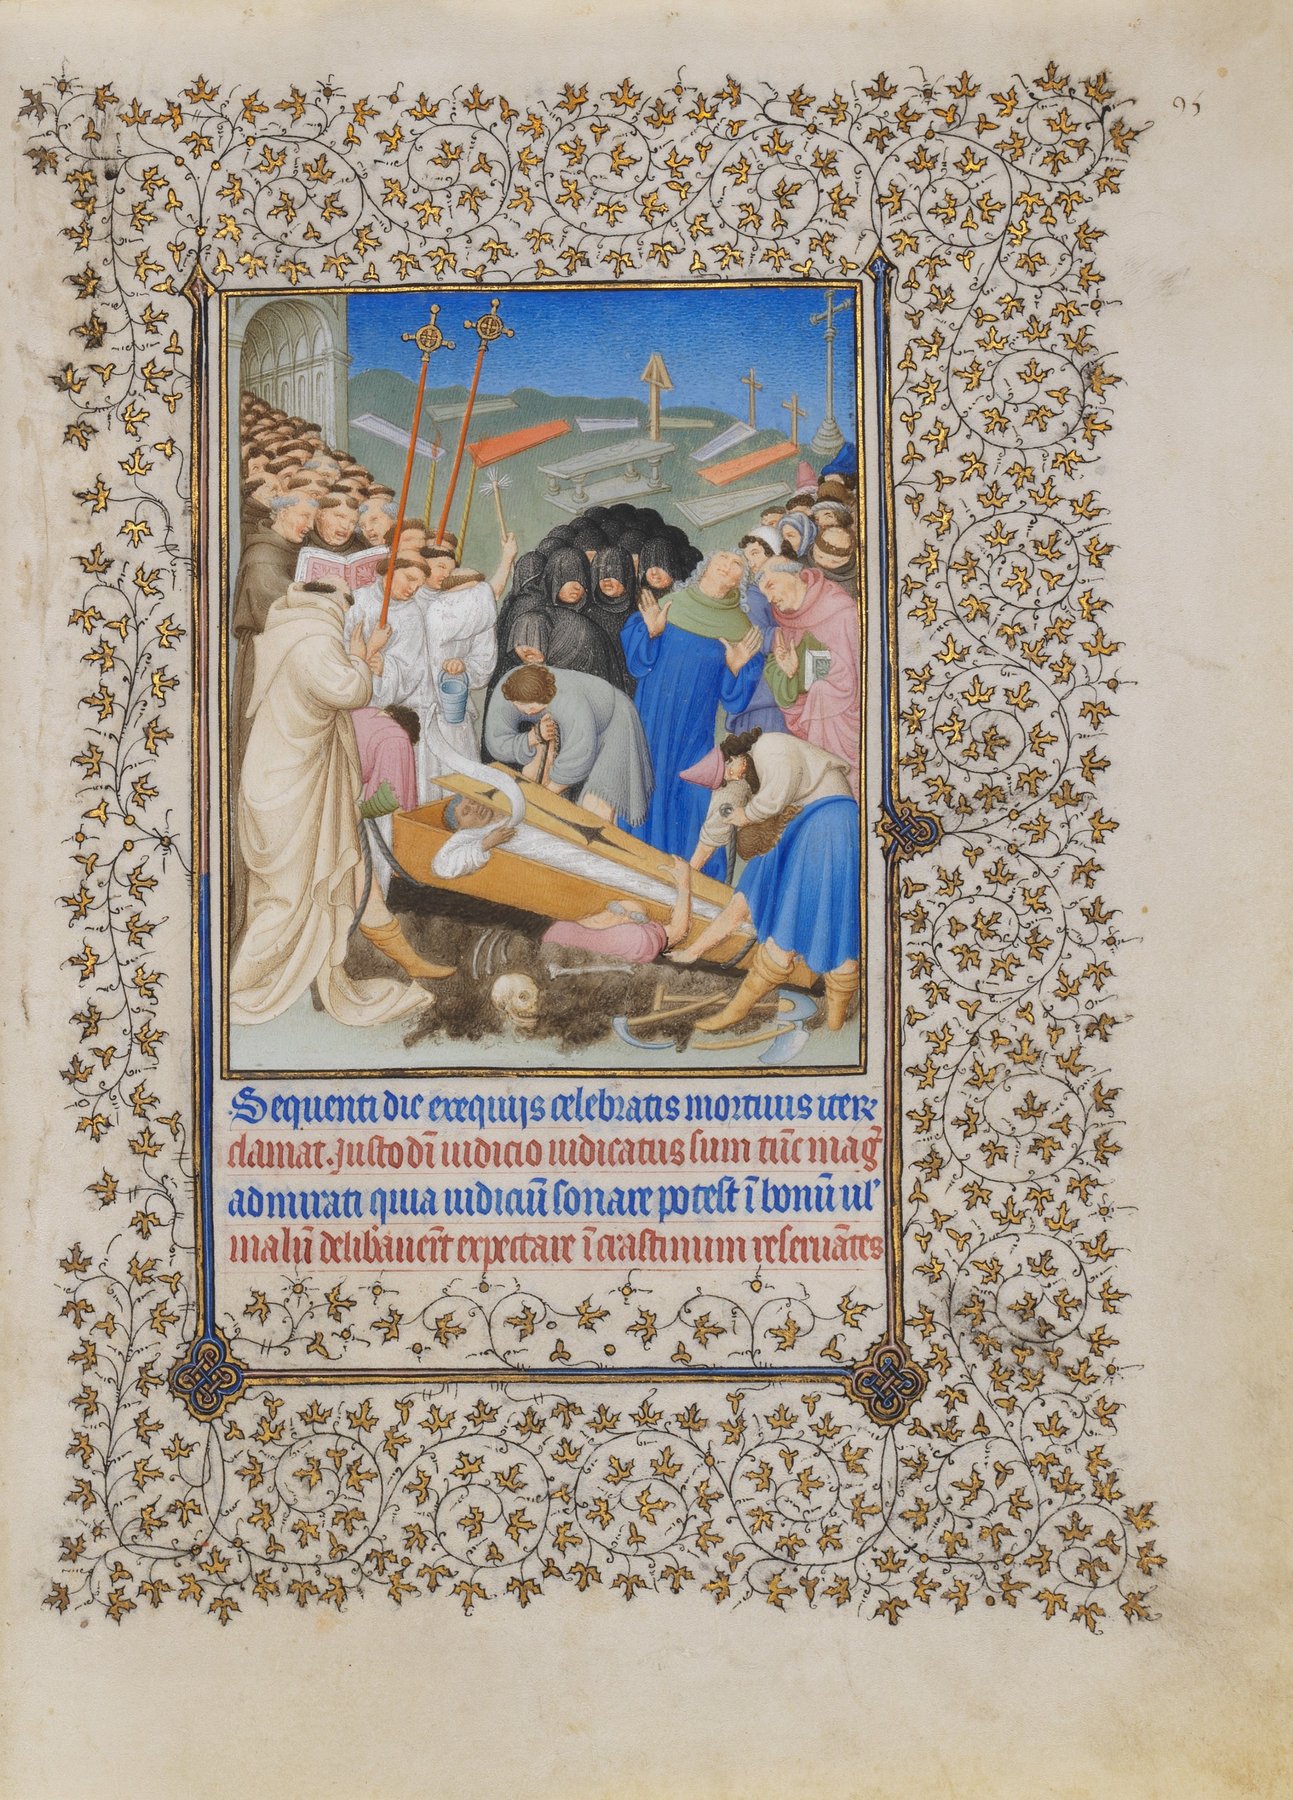 95
Sequenti die exequijs celebratis mortuus iterũ
clamat. Justo dĩ iudicio iudicatus sum tũc mag̃
admirati quia iudiciũ sonare potest ĩ bonũ ul'
malũ delib'auer̃t expectare ĩ crastinum reseruãtes